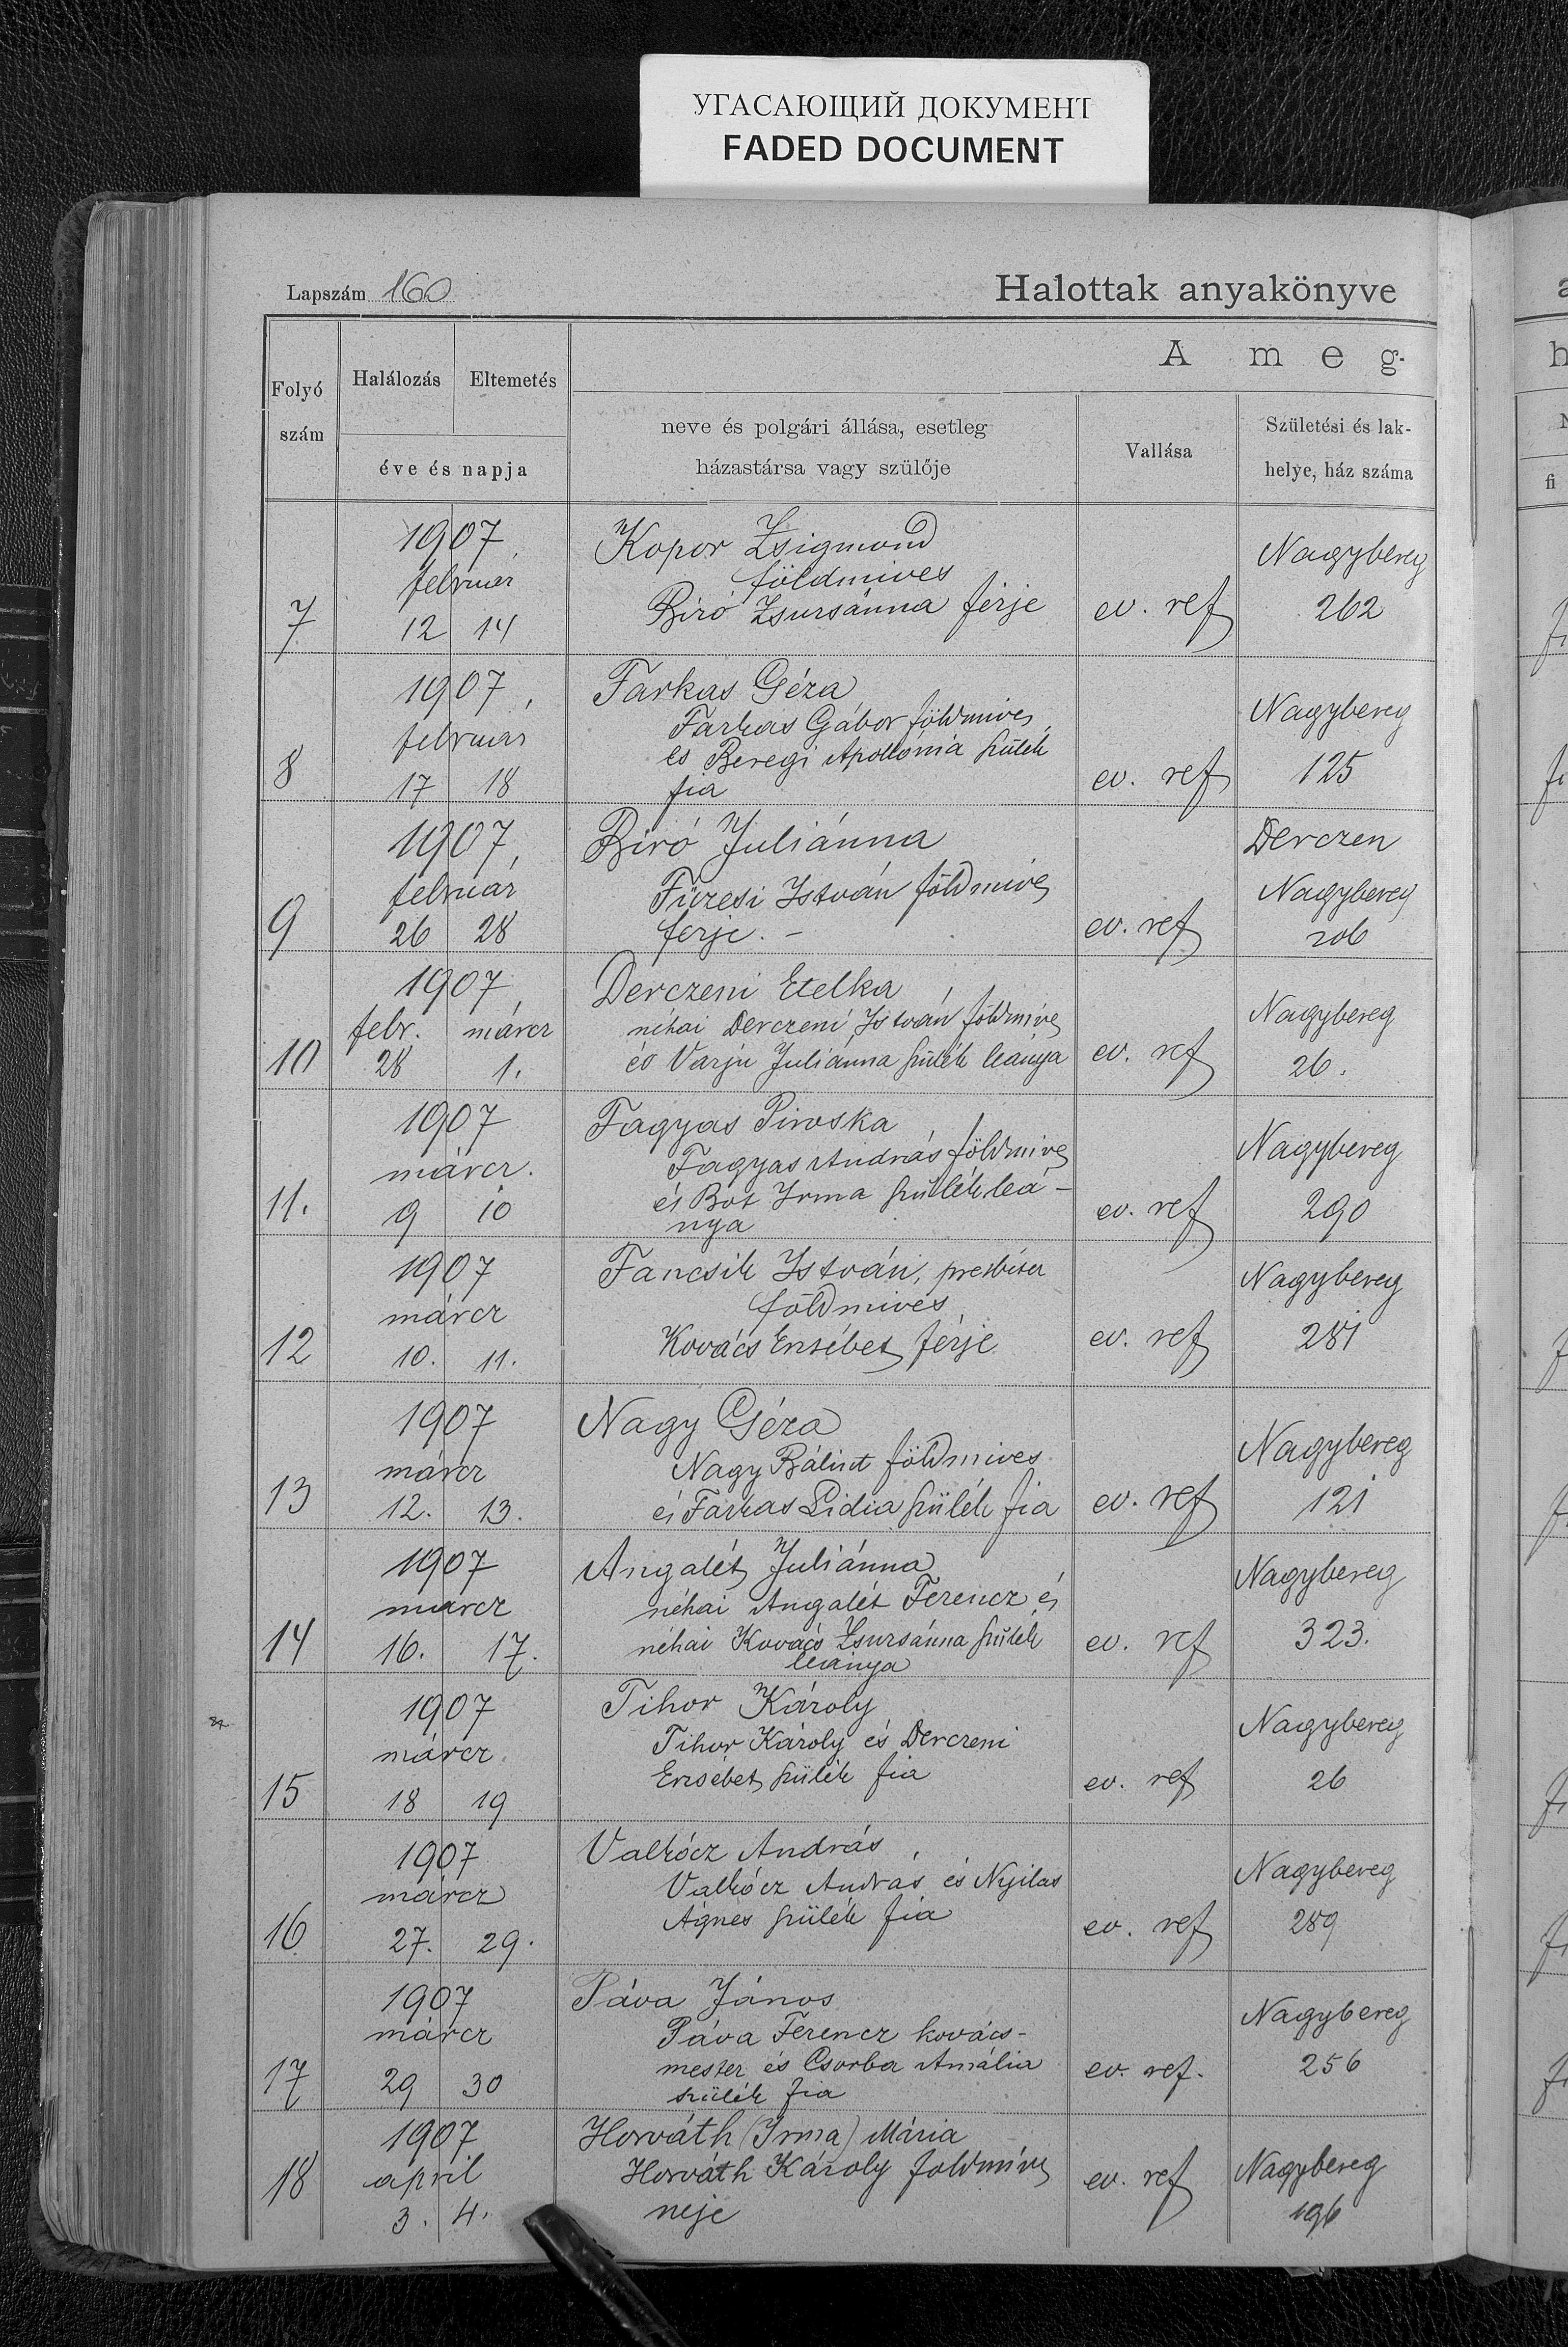 УГАСАЮЩИЙ ДОКУМЕНТ
FADED DOCUMENT
Lapszám 160
Halottak anyakönyve
A meg-
Folyó szám
Halálozás
Eltemetés
éve és napja
neve és polgári állása, esetleg
házastársa vagy szülője
Vallása
Születési és lak-
helye, ház száma
7
1907,
februar
12 14
Kopor Zsigmond
földmives
Biró Zsursánna férje
ev. ref
Nagybereg
262
8
1907,
februar
17 18
Farkas Géza
Farkas Gábor földmives
és Beregi Apollónia szülék
fia
ev. ref
Nagybereg
125
9
1907,
február
26 28
Biró Juliánna
Füzesi István földmives
férje. –
ev. ref
Derczen
Nagybereg
206
10
1907,
febr. márcz
28 1.
Derczeni Etelka
néhai Derczeni István földmives
és Varju Juliánna szülék leánya
ev. ref
Nagybereg
26.
11.
1907
márcz.
9 10
Fagyas Piroska
Fagyas András földmives
és Bot Irma szülék leá-
nya
ev. ref
Nagybereg
290
12
1907
márcz
10. 11.
Fancsik István, presbiter
földmives
Kovács Erzsébet férje
ev. ref
Nagybereg
281
13
1907
márcz
12. 13.
Nagy Géza
Nagy Bálint földmives
és Farkas Lidia szülék fia
ev. ref
Nagybereg
121
14
1907
marcz
16. 17.
Angalét Juliánna
néhai Angalét Ferencz és
néhai Kovács Zsursánna szülék
leánya
ev. ref
Nagybereg
323.
15
1907
márcz.
18 19
Tihor Károly
Tihor Károly és Derczeni
Erzsébet szülék fia
ev. ref
Nagybereg
26
16
1907
márcz
27. 29.
Valkócz András
Valkócz András és Nyilas
Ágnes szülék fia
ev. ref
Nagybereg
289
17
1907
márcz
29 30
Páva János
Páva Ferencz kovács-
mester és Csorba Amália
szülék fia
ev. ref.
Nagybereg
256
18
1907
april
3. 4.
Horváth (Irma) Mária
Horváth Károly földmíves
neje
ev. ref
Nagybereg
196